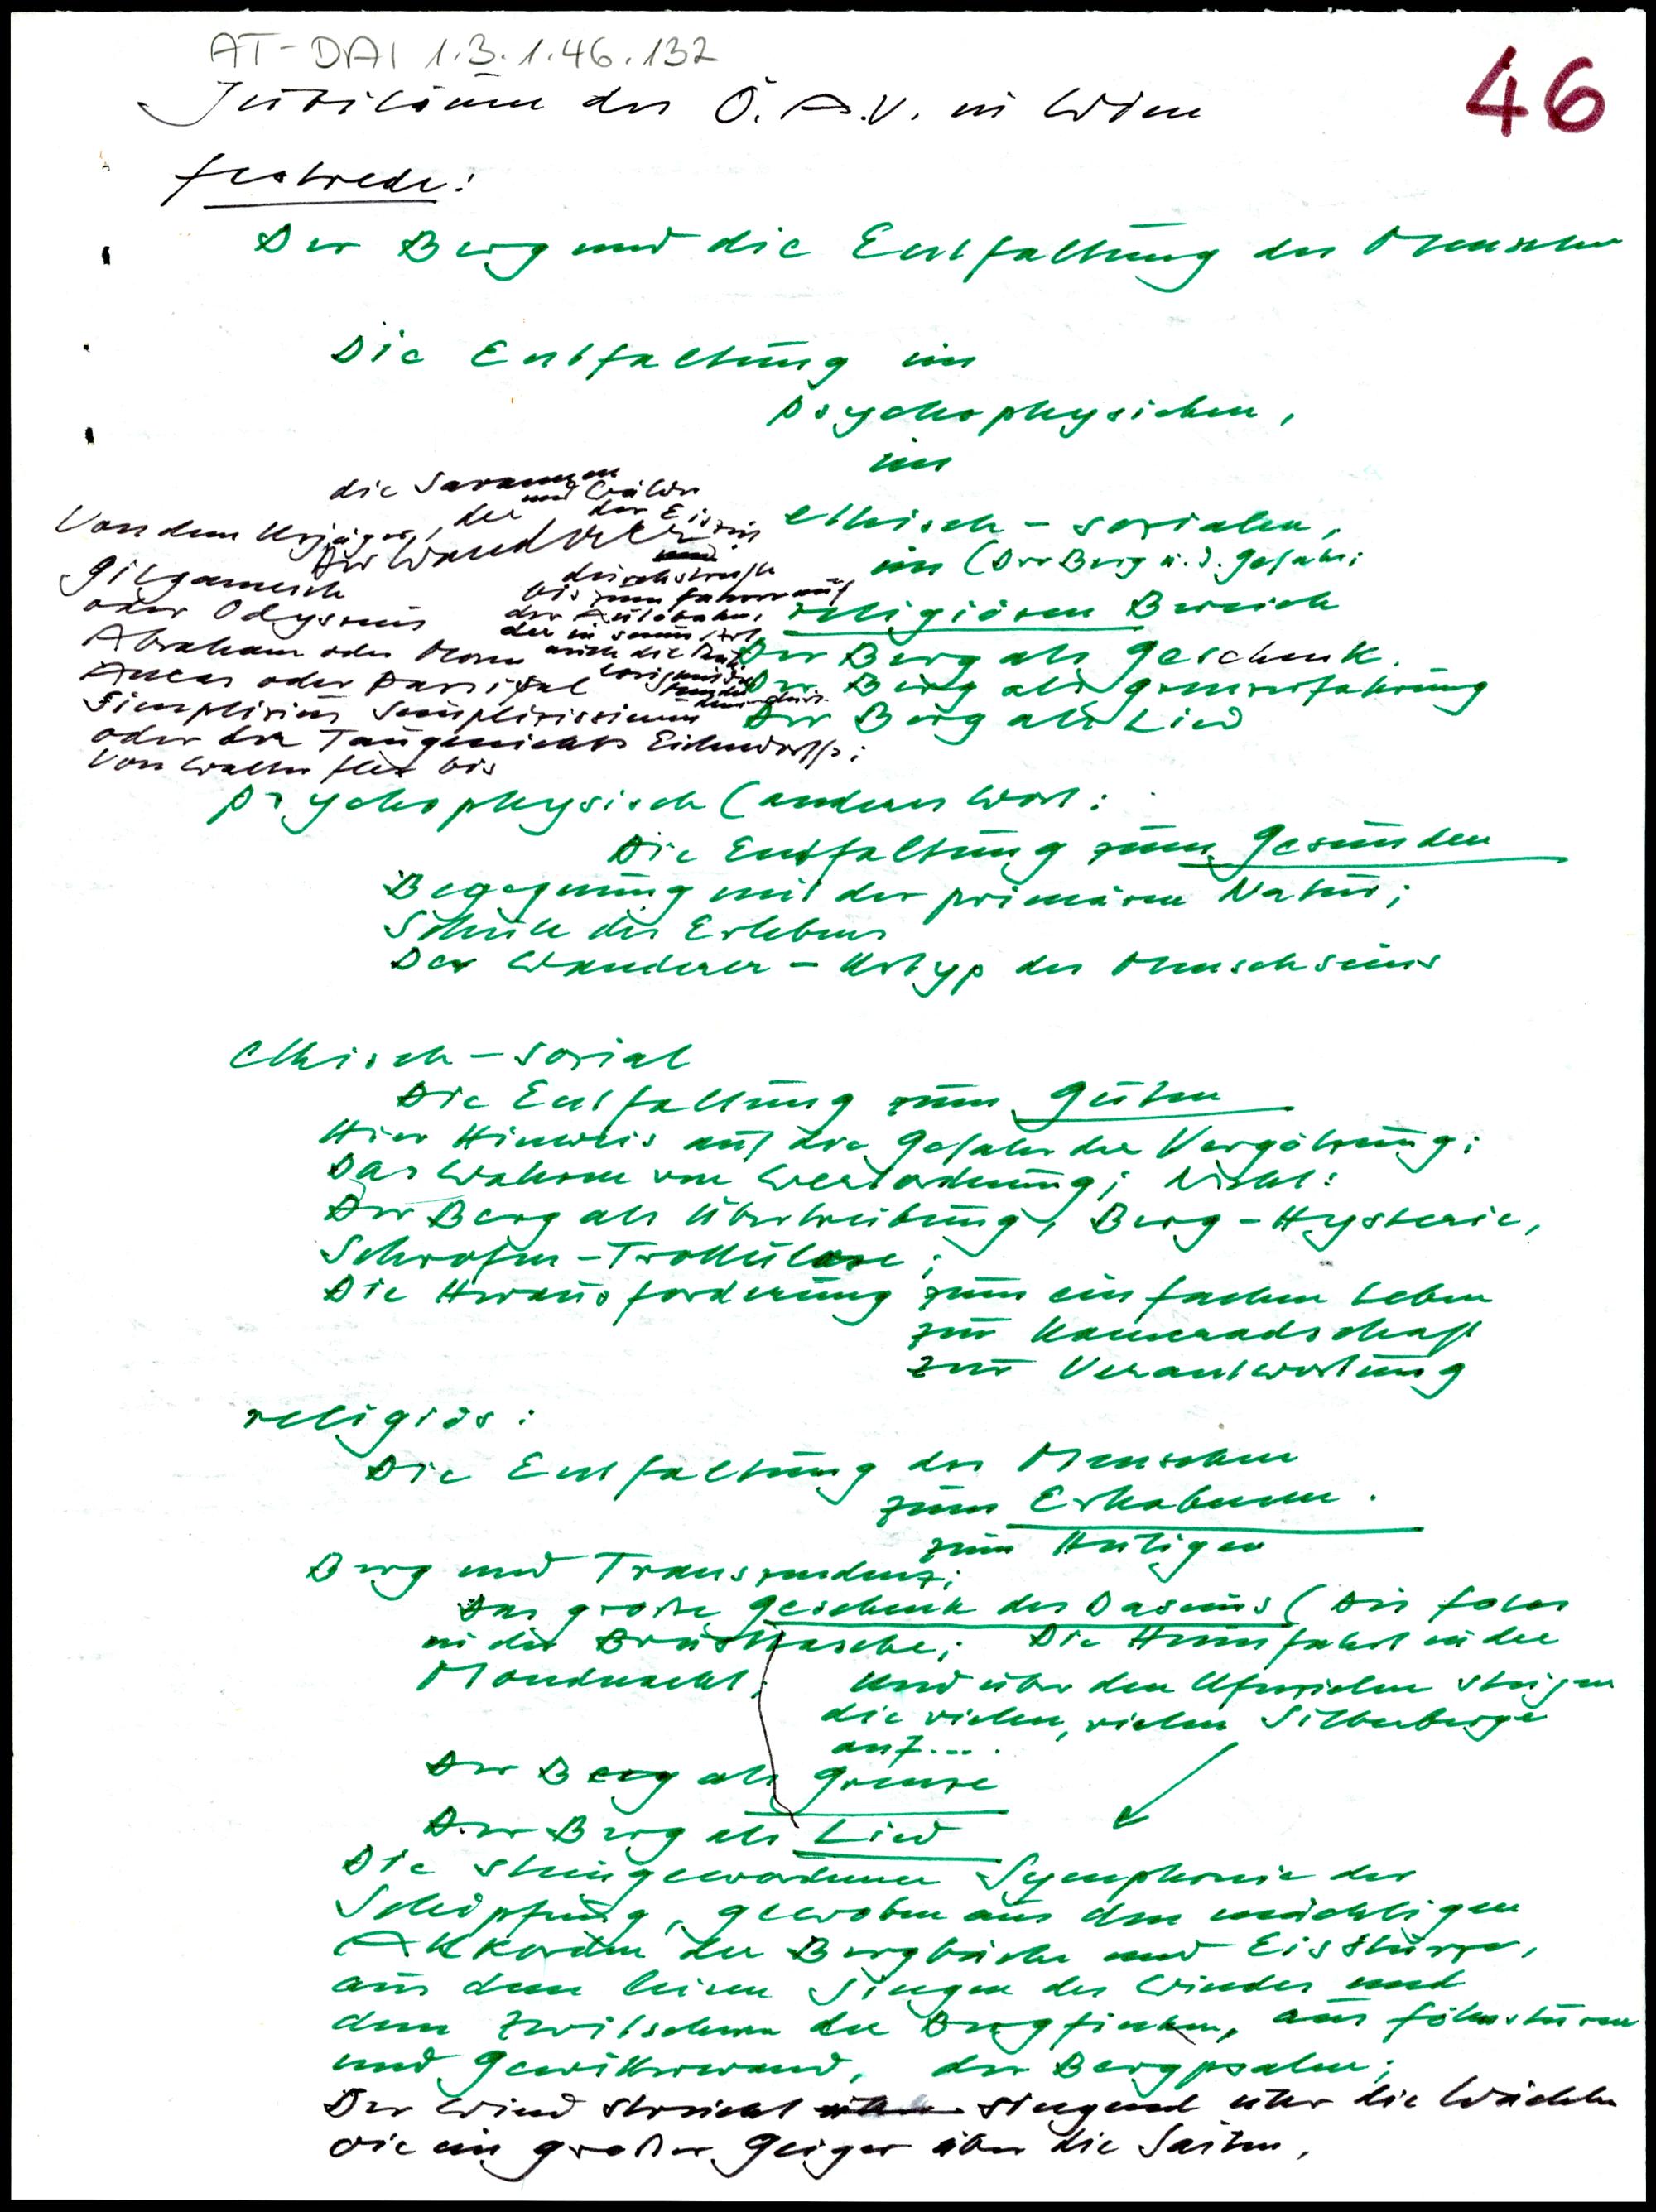 AT-DAI 1.3.1.46.132
46
Jubiläum des Ö.A.V. in Wien
Festrede:
Der Berg und die Entfaltung des Menschen
Die Entfaltung im
psychophysichen,
im
ethisch-sozialen,
im (Der Berg u. d. Gefahr;
religiösen Bereich
Der Berg als Geschenk.
Der Berg als Grenzerfahrung
Der Berg als Lied
die Savannen
und Wälder
Von dem Urjäger, der der Eiszeit
Der Wanderer
durchstreift
Gilgamesch
bis zum Fahrer auf
oder Odysseus
der Autobahn,
der in seiner Art
Abraham oder Moses auch die
Aneas oder Parsifal
Simplizius Simplizissimus
oder der Taugenichts Eichendorffs;
von Walter Flex bis
psychophysisch (anderes Wort:
Die Entfaltung zum Gesunden
Begegnung mit der primären Natur;
Schule des Erlebens
Der Wanderer - Urtyp des Menschseins
ethisch-sozial
Die Entfaltung zum Guten
Hier Hinweis auf die Gefahr der Vergötzung;
Das Wahren von Wertordnung; Nicht:
Der Berg als Übertreibung, Berg-Hysterie,
Schrofen-Trottulose;
Die Herausforderung zum einfachen Leben
zur Kameradschaft
zur Verantwortung
religiös:
Die Entfaltung des Menschen
zum Erhabenen.
zum Heiligen
Berg und Transzendenz;
Das große Geschenk des Daseins (Die Fotos
in der Brusttasche; Die Heimfahrt in der
Mondnacht; Und über den Ufweiden steigen
die vielen, vielen Silberberge
auf...
Der Berg als Grenze
Der Berg als Lied
Die steingewordene Symphonie der
Schöpfung, gewoben aus den mächtigen
Akkorden der Bergbäche und Eisstürze,
aus dem leisen Singen des Windes und
dem Zwitschern der Bergfinken, aus Föhnstürmen
und Gewitterwand, der Bergpsalm;
Der Wind streicht singend über die Wächten
wie ein großer Geiger über die Saiten,